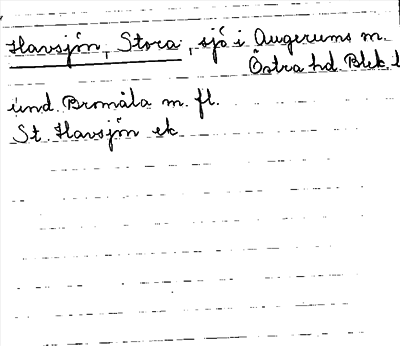 Havsjön, Stora, sjö i Augerums m.
Östra hd. Blek. l
und. Bromåla m. fl.
St. Havsjön ek